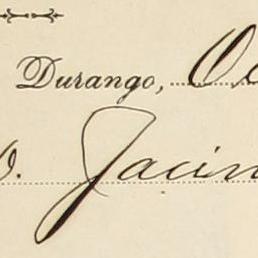 Durango, Oc
D. Jacin